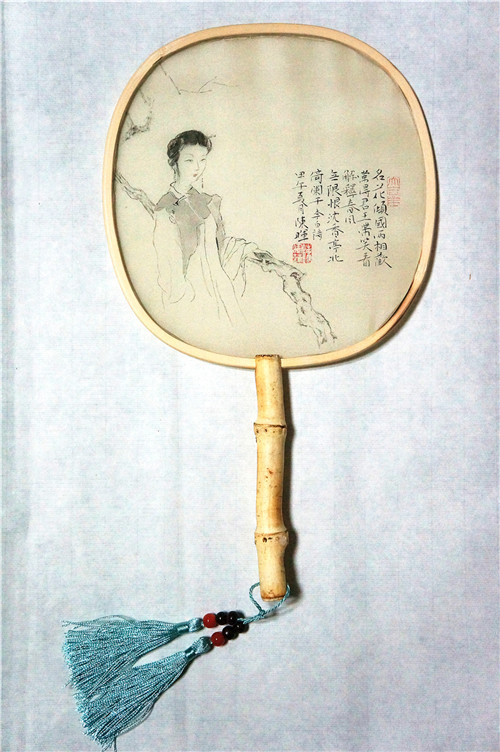 名花傾國兩相歡
常得君王帶笑看
解釋春風
无限恨沈香亭北
倚闌干李白詩
甲午夏